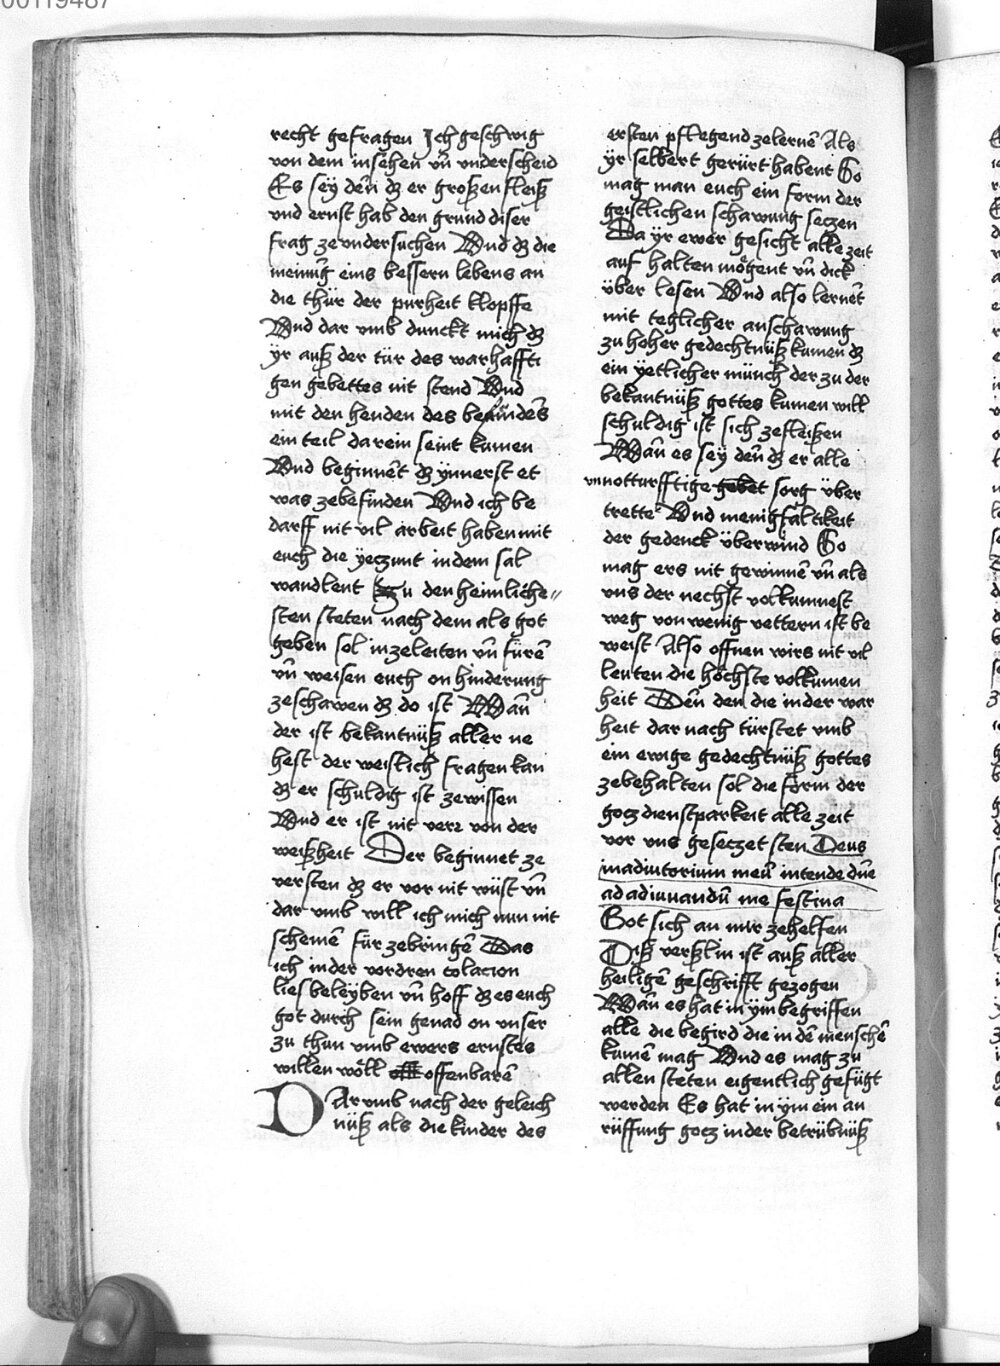 00119487
recht gefragen Ich geschwig
von dem insehen vn̄ vnderscheid
Es sey deñ dz er großen fleiß
vnd ernst hab den grund diser
frag ze vndersuchen Vnd dz die
meinūg eins bessern lebens an
die thür der purheit klopffe
Vnd dar vmb dunckt mich dz
yr auß der tür des warhaffti
gen gebettes nit stend Vnd
mit den henden des
ein teil darein seint kumen
Vnd beginnēt dz ynnerst et
was zebefinden Vnd ich be
darff nit vil arbeit haben mit
euch die yeczunt in dem sal
wandlent zu den heimliche〃
sten steten nach dem als got
geben sol in zeleiten vn̄ fürē
vn̄ weisen euch on hinderung
zeschawen dz do ist Wañ
der ist bekantnüß aller ne
hest der weislich fragen kan
dz er schuldig ist zewissen
Vnd er ist nit verr von der
weißheit Der beginnet ze
versten dz er vor nit wüst vn̄
dar vmb will ich mich nun nit
schemē für zebringē Das
ich in der vordren colacion
lies beleyben vn̄ hoff dz es euch
got durch sein genad on vnser
zu thun vmb ewers ernstes
willen wöll offenbarē
DAr vmb nach der geleich
nüß als die kinder des
ersten pflegend zelernē Als
yr selbert gerürt habent So
mag man euch ein form der
geistlichen schawung seczen
Da yr ewer gesicht alle zeit
auf halten mögent vn̄ dick
über lesen Vnd also lernēt
mit teglicher anschawung
zu hoher gedechtnüß kumen dz
ein yetlicher münch der zu der
bekantnüß gottes kumen will
schuldig ist sich zefleißen
Wañ es sey deñ dz er alle
vnnotturfftige gebet sorg über
trette Vnd menigfaltikeit
der gedenck überwind So
mag ers nit gewinnē vn̄ als
vns der nechst volkumnest
weg von wenig vettern ist be
weist Also offnen wirs nit vil
leuten die höchste volkumen
heit Deñ den die in der war
heit dar nach türstet vmb
ein ewige gedechtnüß gottes
zebehalten sol die form der
gocz dienstparkeit alle zeit
vor vns gesetzet sten Deus
in adiutorium meū intende dn̄e
ad adiuuandū me festina
Got sich an mir zehelfen
Diß verßlin ist auß aller
heiligē geschrifft gezogen
Wañ es hat in ym begriffen
alle die begird die in dē menschē
kumē mag Vnd es mag zu
allen steten eigentlich gefügt
werden Es hat in ym ein an
rüffung gocz in der betrübnüß